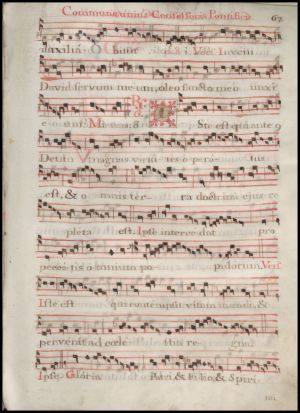 Commune unius Confessoris Pontificis. 67
auxilia. O Vers. Inveni
David servum meum, oleo sancto meo unxi
eum. M 8 Iste est qui ante
Deum magnas virtutes operatus
est, & omnis terra doctrina ejus re
pleta est. Ipse intercedat pro
peccatis omnium populorum. Vers.
Iste est qui contempsit vitam mundi, &
pervenit ad coelestia regna.
Ipse. Gloria Patri, & Filio, & Spiri-